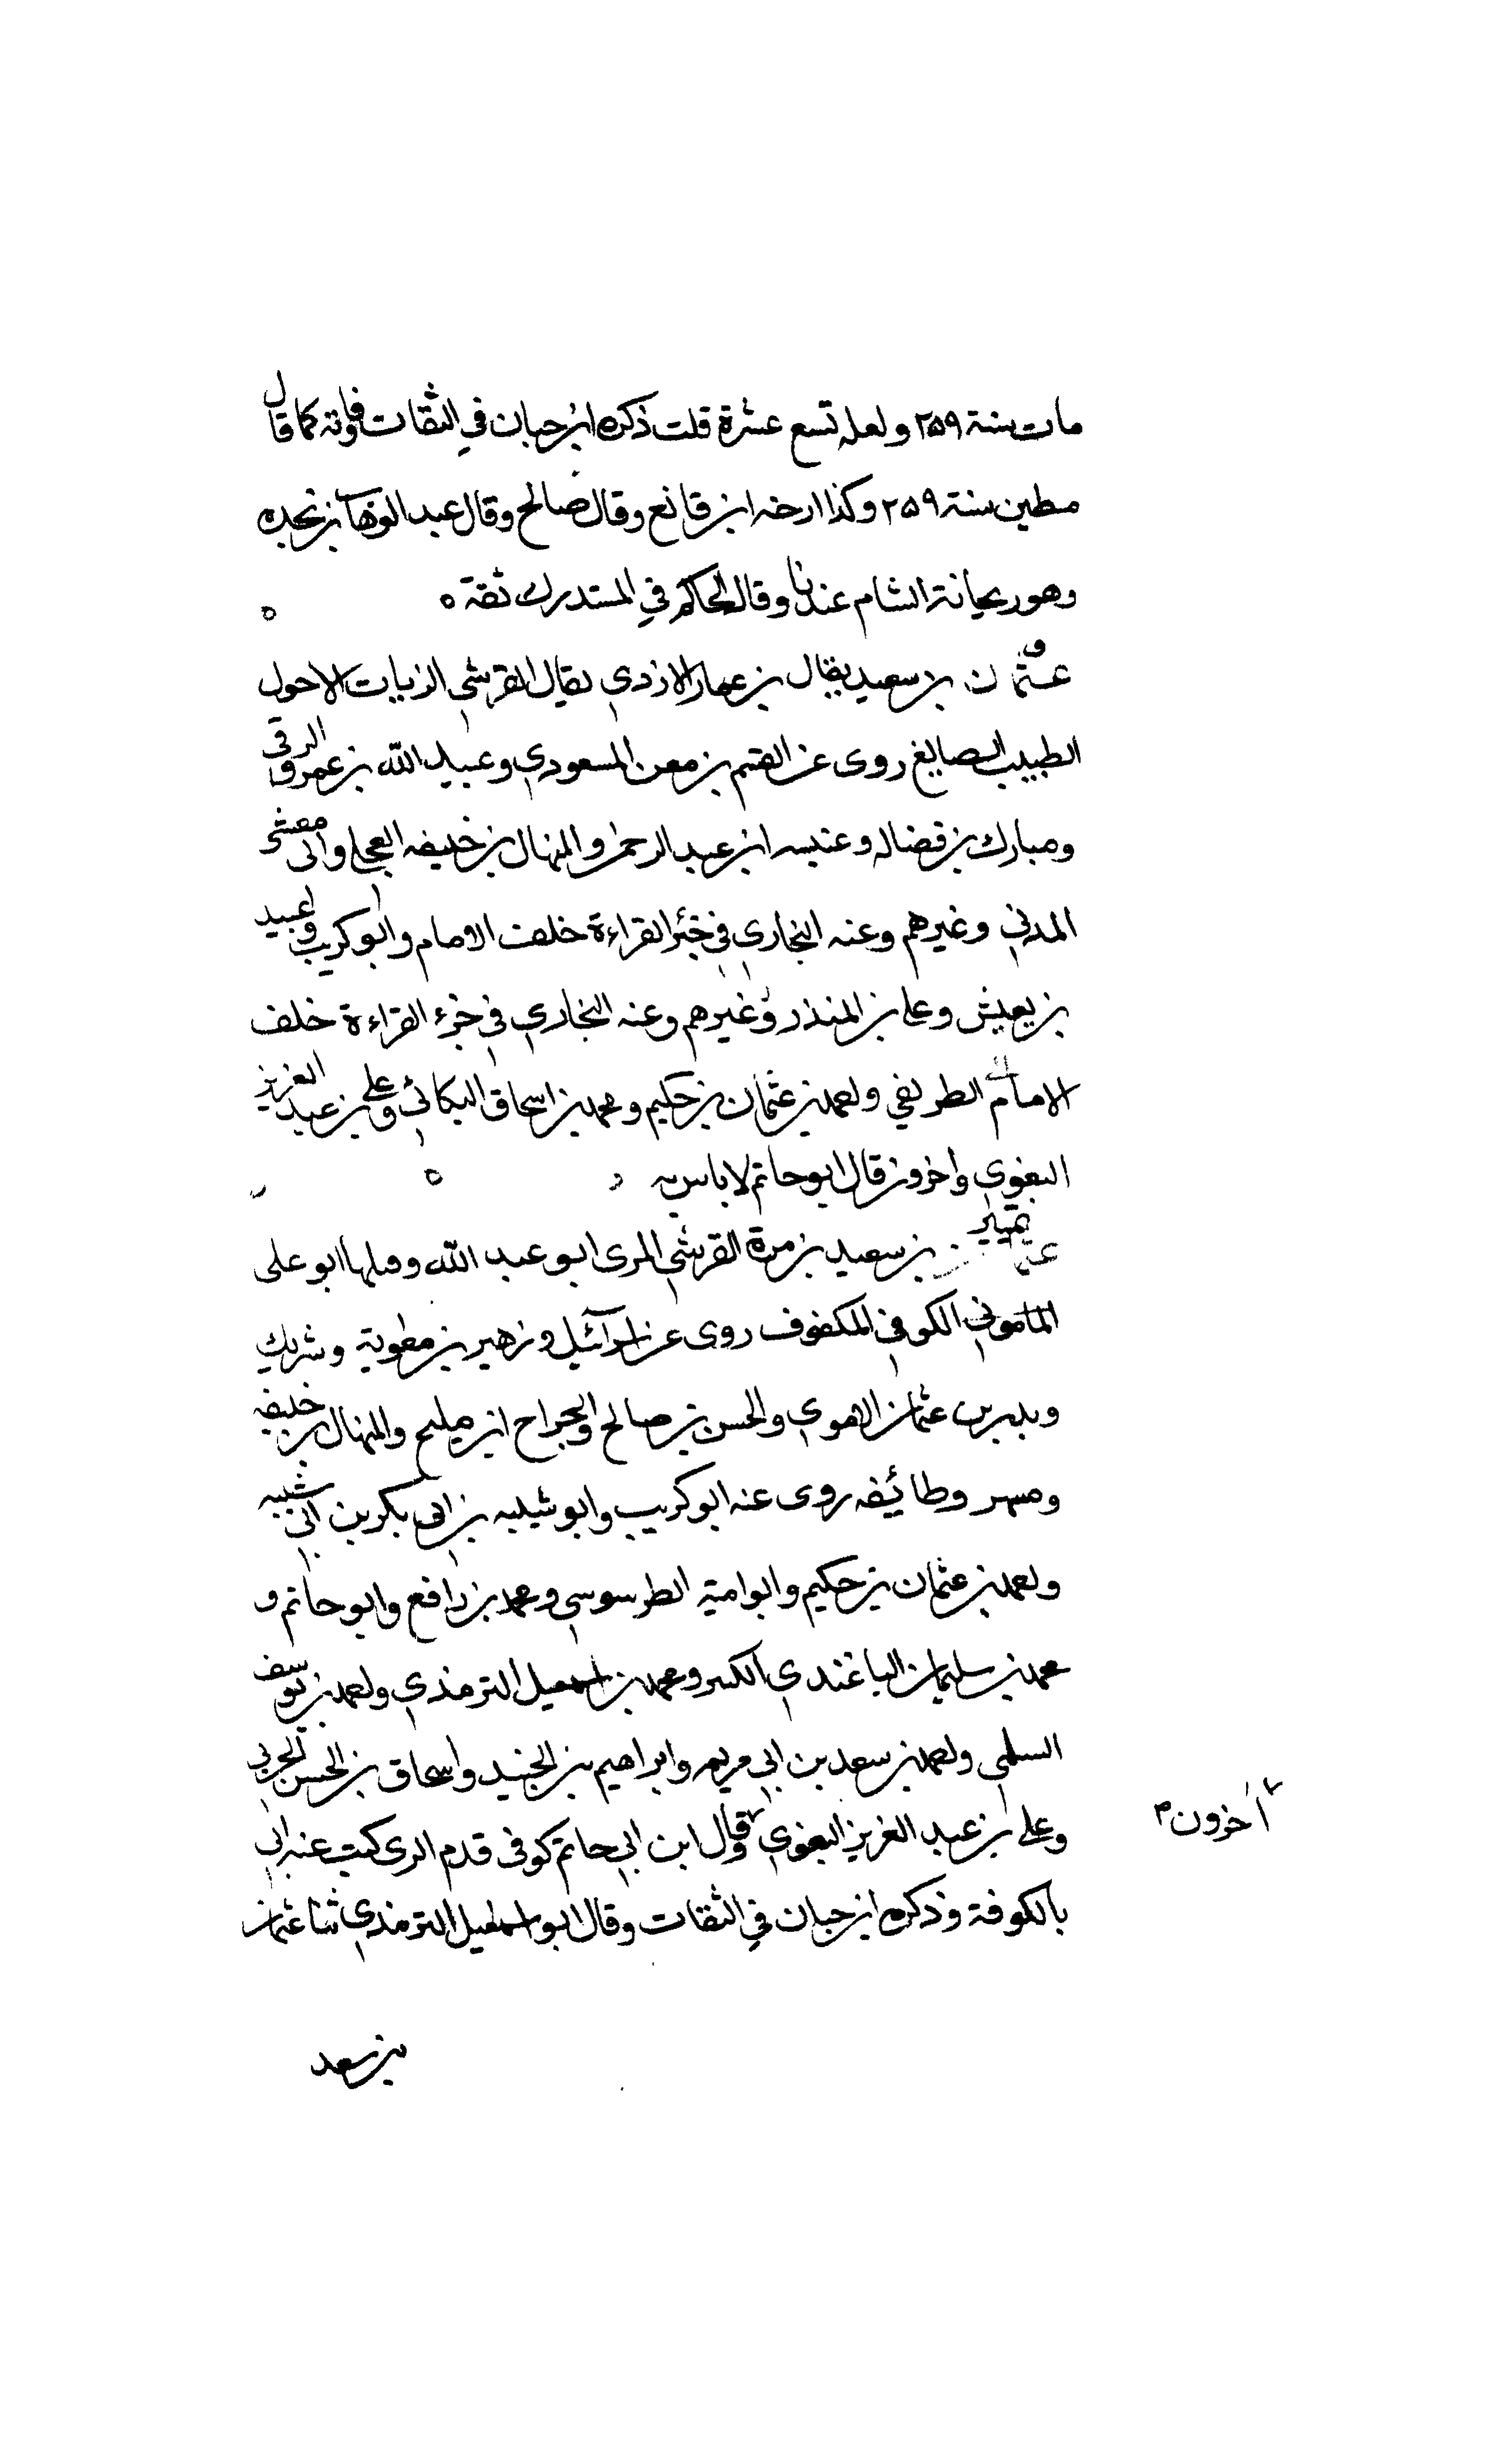 مات سنة ٢٥٩ ولعله تسع عشرة قلت ذكره ابن حبان في الثقات وفاته كما قال
مطين سنة ٢٥٩ وكذا ارخه ابن قانع وقال صالح وقال عبد الوهاب بن نجده
وهو ريحانة الشام عندنا وقال الحاكم في المستدرك ثقة ه ه
عثمان بن سعيد يقال بن عمار الازدي يقال القرشي الزيات الاحول
الطبيب الصايغ روى عن القسم بن معن المسعودي وعبيد الله بن عمرو الرقي
ومبارك بن فضاله وعنبسه ابن عبد الرحمن والمنهال بن خليفه العجلي وابي معشر
المدني وغيرهم وعنه البخاري في جزء القراءة خلف الامام وابو كريب وعبيد
بن يعيش وعلي بن المنذر وغيرهم وعنه البخاري في جزء القراءة خلف
الامام الطريفي واحمد بن عثمان بن حكيم ومحمد بن اسحاق البكائي وعلي بن عبد العزيز
البغوي واخرون قال ابو حاتم لا باس به ه
تمييز
عثمان بن سعيد بن مرة القرشي المرى ابو عبد الله ابو على
المكفوف روى عن اسرائيل وزهير بن معوية وشريك
عثمان الاموي والحسن بن صالح والجراح ابن مليح والمنهال بن خليفه
ومسهر وطائفه روى عنه ابو كريب وابو شيبه بن ابي بكر بن ابي شيبه
واحمد بن عثمان بن حكيم وابو امية الطرسوسي ومحمد بن رافع وابو حاتم و
محمد بن سليمان الباغندي الكبير ومحمد بن اسمعيل الترمذي واحمد بن يوسف
السلمي واحمد بن سعد بن ابي مريم وابراهيم بن الجنيد واسحاق بن الحسن الحربي
وعلي بن عبد العزيز البغوي وقال ابن ابي حاتم كوفى قدم الرى كتب عنه ابي
اخرون
بالكوفة وذكره ابن حبان في الثقات وقال ابو اسمعيل الترمذي ثنا عثمان
بن سعد